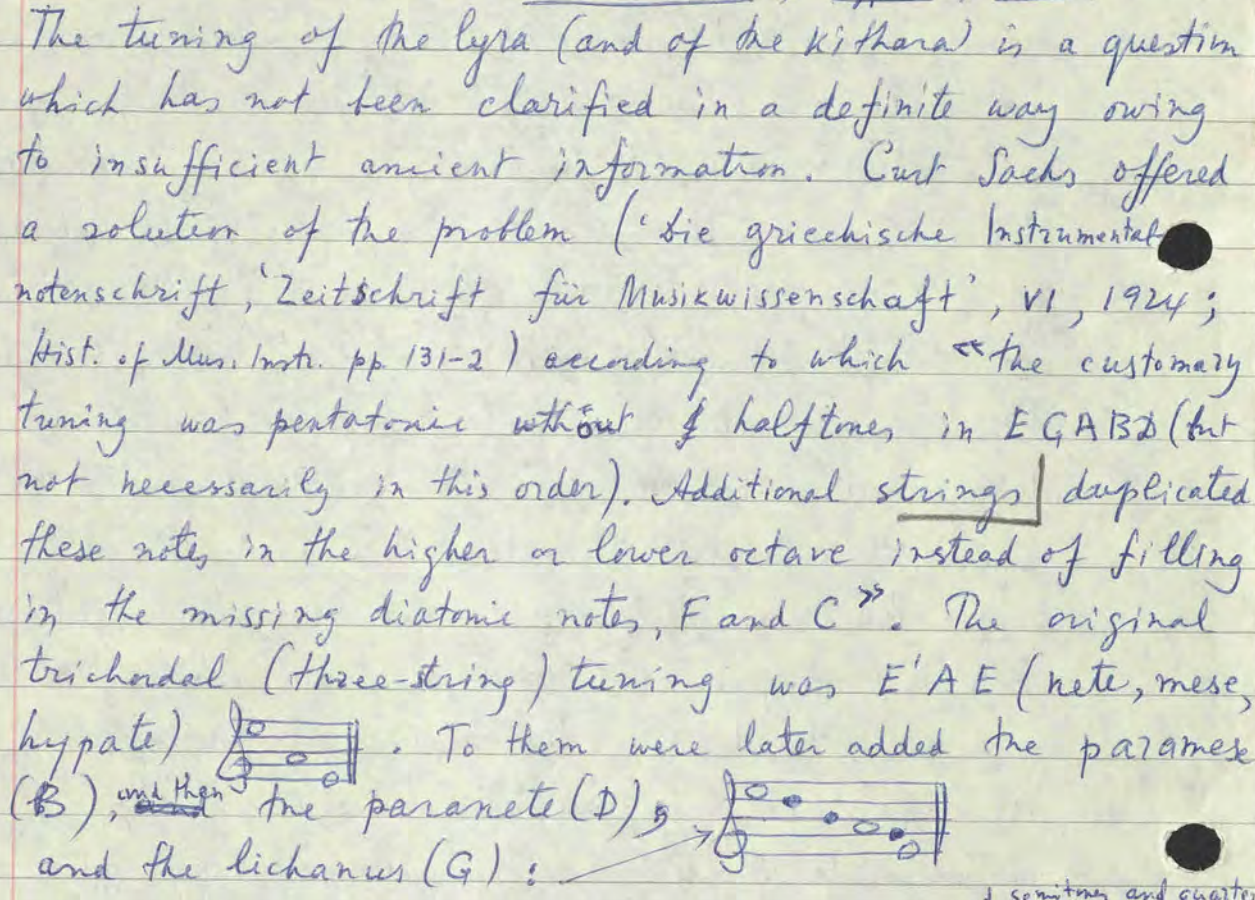 The tuning of the lyra (and of the kithara) is a question
which has not been clarified in a definite way owing
to insufficient ancient information. Curt Sachs offered
a solution of the problem ('Die griechische Instrumental-
notenschrift,' Zeitschrift für Musikwissenschaft', VI, 1924;
Hist. of Mus. Instr. pp. 131-2) according to which «the customary
tuning was pentatonic without halftones in EGABD (but
not necessarily in this order). Additional strings duplicated
these notes in the higher or lower octave instead of filling
in the missing diatonic notes, F and C». The original
trichordal (three-string) tuning was E'AE (nete, mese,
hypate) . To them were later added the paramese
(B), and then the paranete (D),
and the lichanus (G) :
semitones and quarter